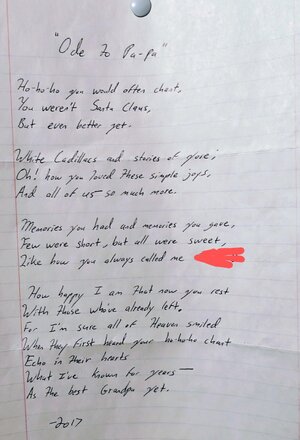 "Ode to Pa-pa"
Ho-ho-ho you would often chant,
You weren't Santa Claus,
But even better yet.
White Cadillacs and stories of yore;
Oh! how you loved these simple joys,
And all of us- so much more.
Memories you had and memories you gave,
Few were short, but all were sweet,
Like how you always called me
How happy I am that now you rest
With those who've already left.
For I'm sure all of Heaven smiled
When they first heard your ho-ho-ho chant
Echo in their hearts
What I've known for years—
As the best Grandpa yet.
-2017